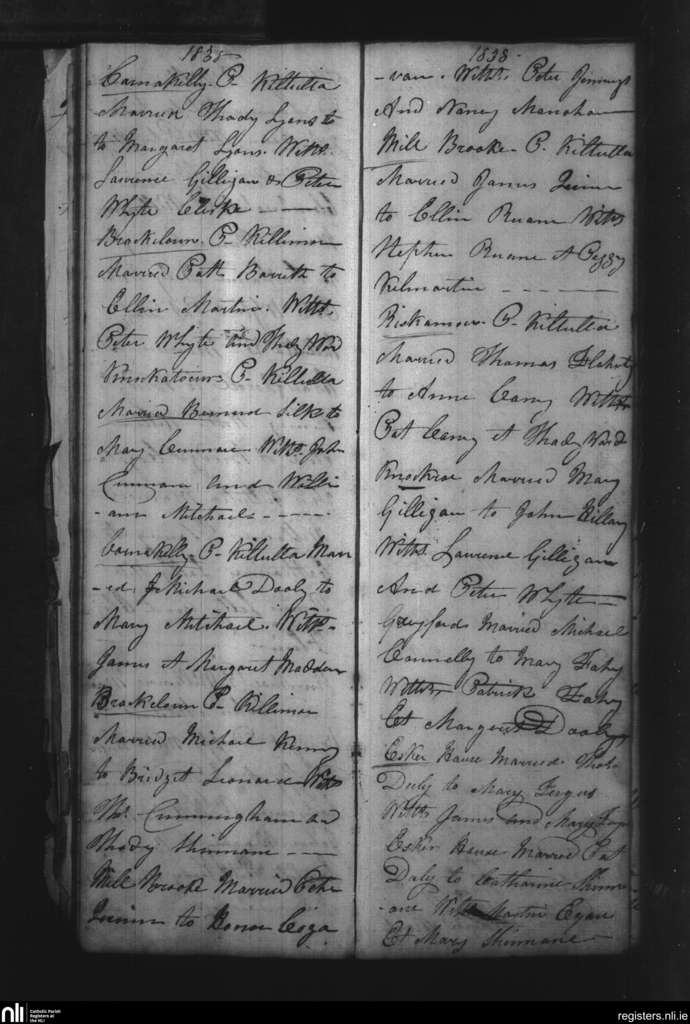 1838
Carnakelly. P. Kiltulla
Married Thady Lyons to
to Margaret Lyons. Witts.
Lawrence Gilligan & Peter
Whyte Clerk
Brackloun. P. Killimor
Married Patt Barrett to
Ellin Martin. Witts.
Peter Whyte and Thady Ward
Knockatour P. Kiltulla
Married Bernard Silk to
Mary Cunnane Witts. John
Cunnane and Willi
-am Mitchael
Carnakelly P. Kiltulla Marri
-ed Michael Dooly to
Mary Mitchael. Witts.
James & Margaret Madden
Brackloun P. Killimor
Married Michael Kenny
to Bridget Leonard Witts
Thos. Cunningham and
Thady Shinnane
Mill Brook Married Peter
Quinn to Honor Coga
1838
-van. Witts. Peter Jennings
And Nancy Monohan
Mill Brooke P. Kiltulla
Married James Quinn
to Ellin Ruane Witts
Stephen Ruane & Peggy
Kilmartin
P. Kiltulla
Married Thomas Flaherty
to Anne Carey Witts
Pat Carey & Thady Ward
Knockroe Married Mary
Gilligan to John Hillary
Witts Lawrence Gilligan
And Peter Whyte
Married Michael
Connolly to Mary Fahy
Witts. Patrick Fahy
Et Margaret Dooly
Esker House Married Thos.
Duly to Mary Fergus
Witts James and Mary
Esker House Married Pat
Daly to Catharine Shinn
-ane Witts Martin Egan
Et Mary Shinnane
nli
Catholic Parish
Registers at
the NLI
registers.nli.ie